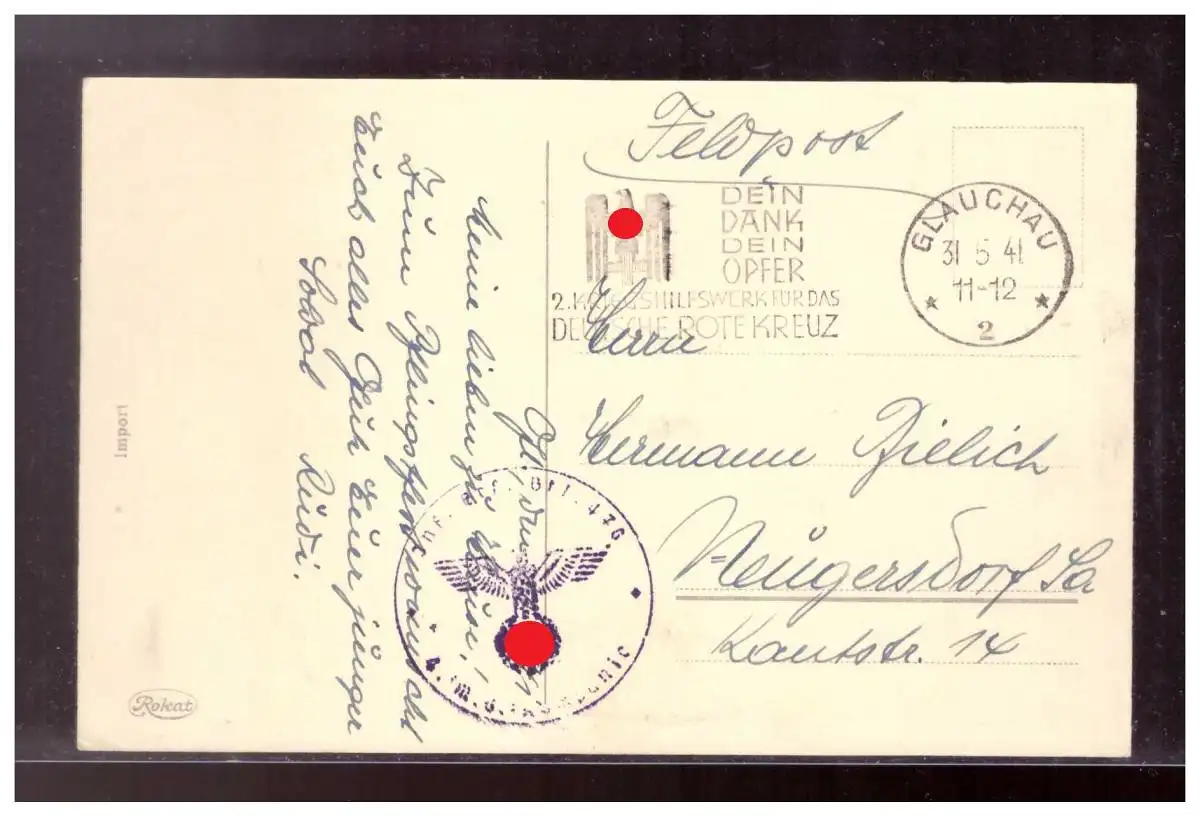 Feldpost
DEIN
DANK
DEIN
OPFER
2. KRIEGSHILFSWERK FÜR DAS
DEUTSCHE ROTE KREUZ
GLAUCHAU
31 5 41
11-12
2
Herrn
Hermann Zielich
Neugersdorf Sa
Kantstr. 14
Meine lieben zu Hause!
Pfingsten wünscht
Euch alles Gute Euer junger
Soldat Rudi.
476
Import
Rokat